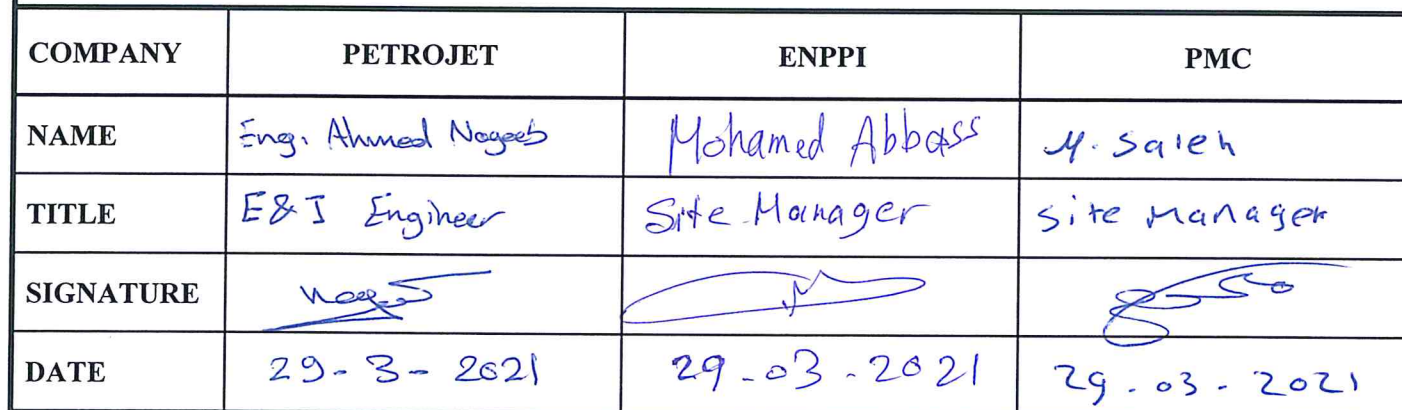 COMPANY PETROJET ENPPI PMC
NAME Eng. Ahmed Nageeb Mohamed Abbass M. Saleh
TITLE E&I Engineer Site Manager site Manager
SIGNATURE
DATE 29-3-2021 29-03-2021 29-03-2021